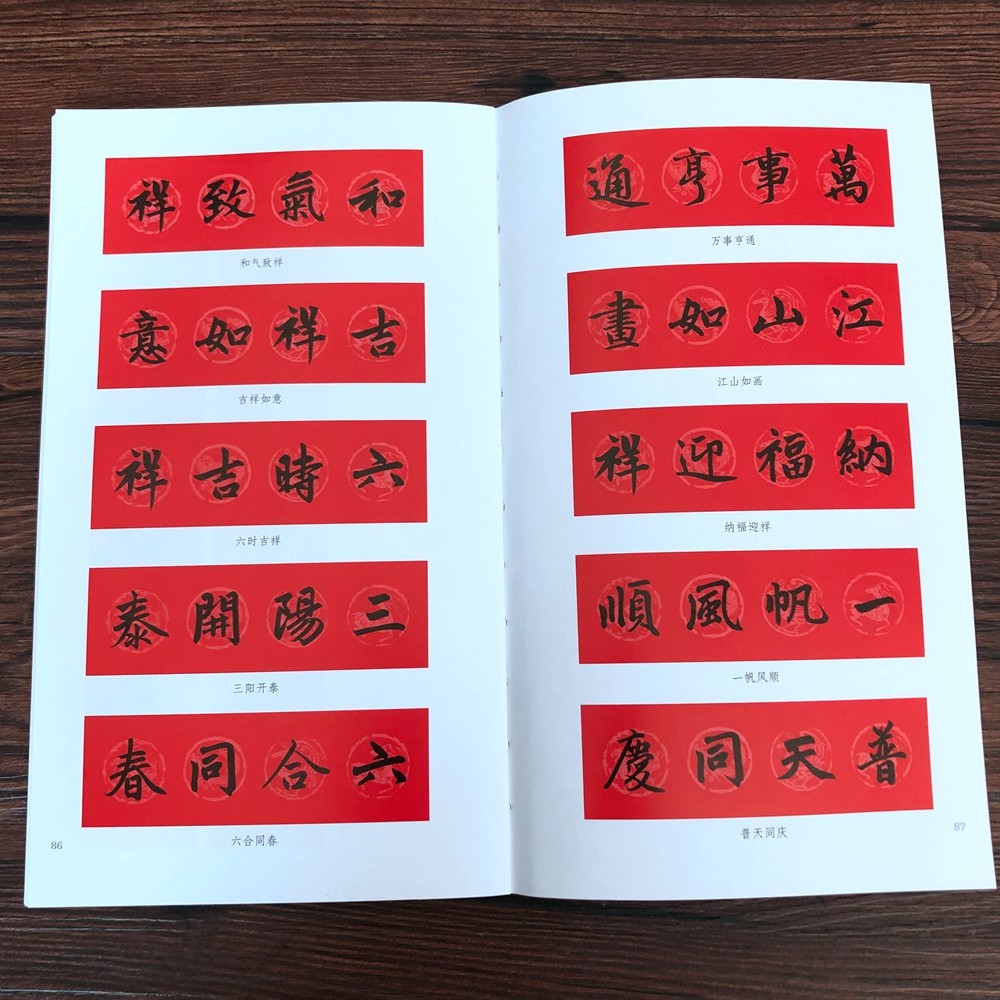 和氣致祥
和气致祥
吉祥如意
吉祥如意
六時吉祥
六时吉祥
三陽開泰
三阳开泰
六合同春
六合同春
86
萬事亨通
万事亨通
江山如畫
江山如画
納福迎祥
纳福迎祥
一帆風順
一帆风顺
普天同慶
普天同庆
87